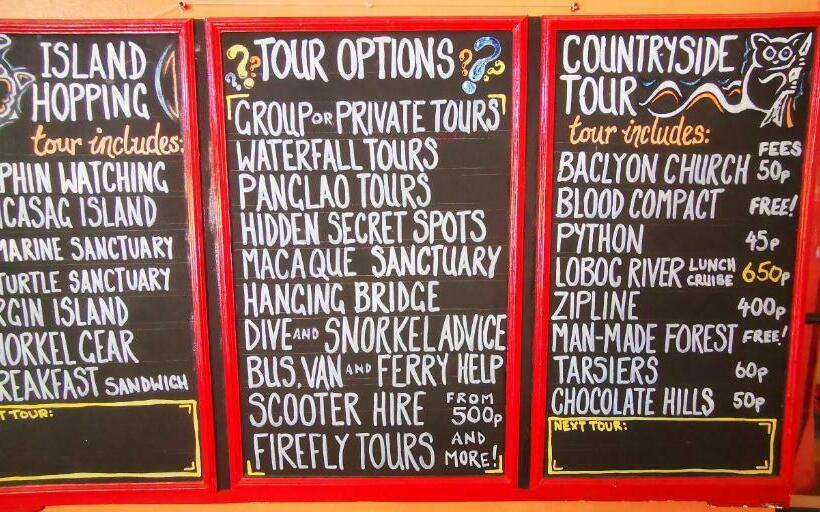 ISLAND
HOPPING
tour includes:
PHIN WATCHING
ICASAG ISLAND
MARINE SANCTUARY
TURTLE SANCTUARY
RGIN ISLAND
NORKEL GEAR
REAKFAST SANDWICH
T TOUR:
?? TOUR OPTIONS ??
GROUP OR PRIVATE TOURS
WATERFALL TOURS
PANGLAO TOURS
HIDDEN SECRET SPOTS
MACAQUE SANCTUARY
HANGING BRIDGE
DIVE AND SNORKEL ADVICE
BUS, VAN AND FERRY HELP
SCOOTER HIRE FROM 500p
FIREFLY TOURS AND MORE!
COUNTRYSIDE
TOUR
tour includes:
FEES
BACLYON CHURCH 50p
BLOOD COMPACT FREE!
PYTHON 45p
LOBOC RIVER LUNCH CRUISE 650p
ZIPLINE 400p
MAN-MADE FOREST FREE!
TARSIERS 60p
CHOCOLATE HILLS 50p
NEXT TOUR: